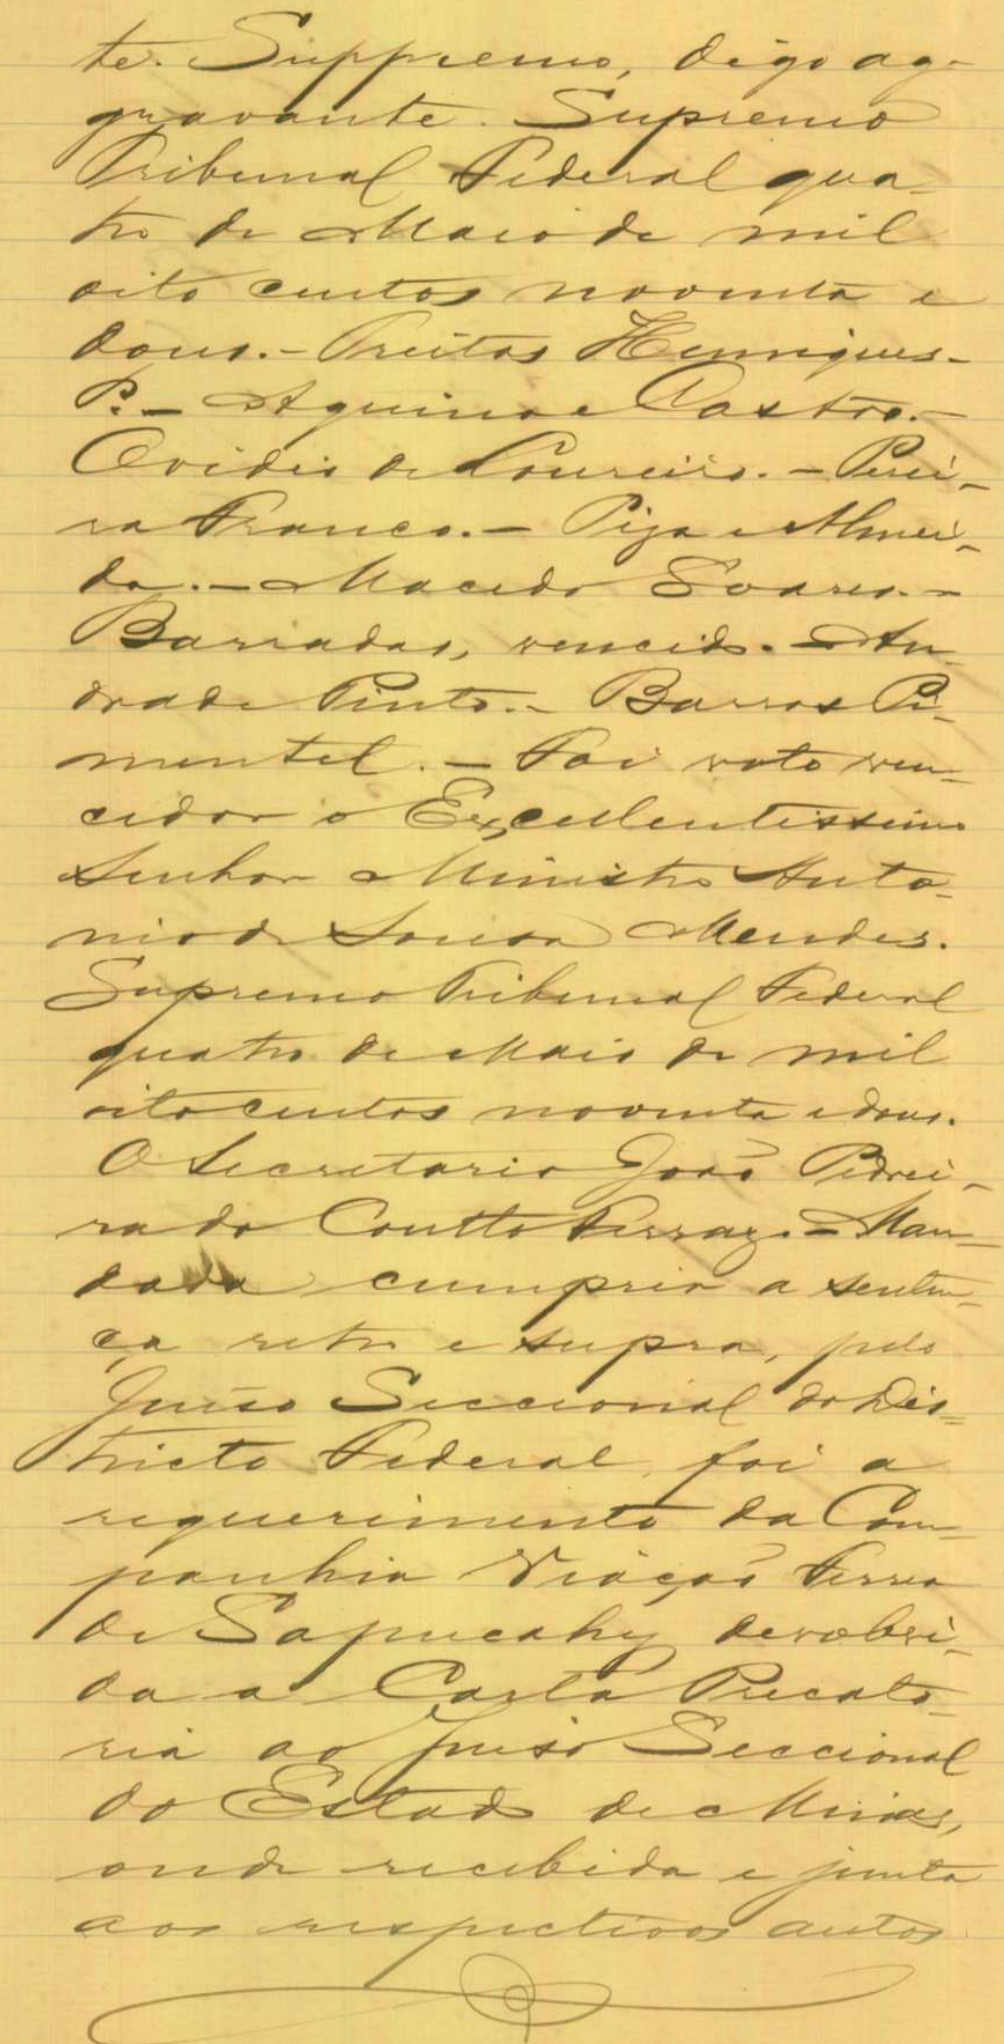 te. Suppremo, digo ag-
gravante. Supremo
Tribunal Federal qua-
tro de Maio de mil
oito centos noventa e
dous.- Freitas Henriques-
P. - Aquino e Castro.-
Ovidio de Loureiro. - Perei-
ra Franco. - Piza e Almei-
da. - Macedo Soares. -
Barradas, vencido. - An-
drade Pinto. - Barros Pi-
mentel. - Foi voto ven-
cedor o Excellentissimo
Senhor Ministro Anto-
nio de Sousa Mendes.
Supremo Tribunal Federal
quatro de Maio de mil
oito centos noventa e dous.
O Secretario João Pedrei-
ra do Coutto Ferraz. - Man-
dada cumprir a senten-
ça retro e supra, pelo
Juiso Seccional do Dis-
tricto Federal, foi a
requerimento da Com-
panhia Viação Ferrea
de Sapucahy devolvi-
da a Carta Precato-
ria ao Juiso Seccional
do Estado de Minas,
onde recebida e junta
aos respectivos autos